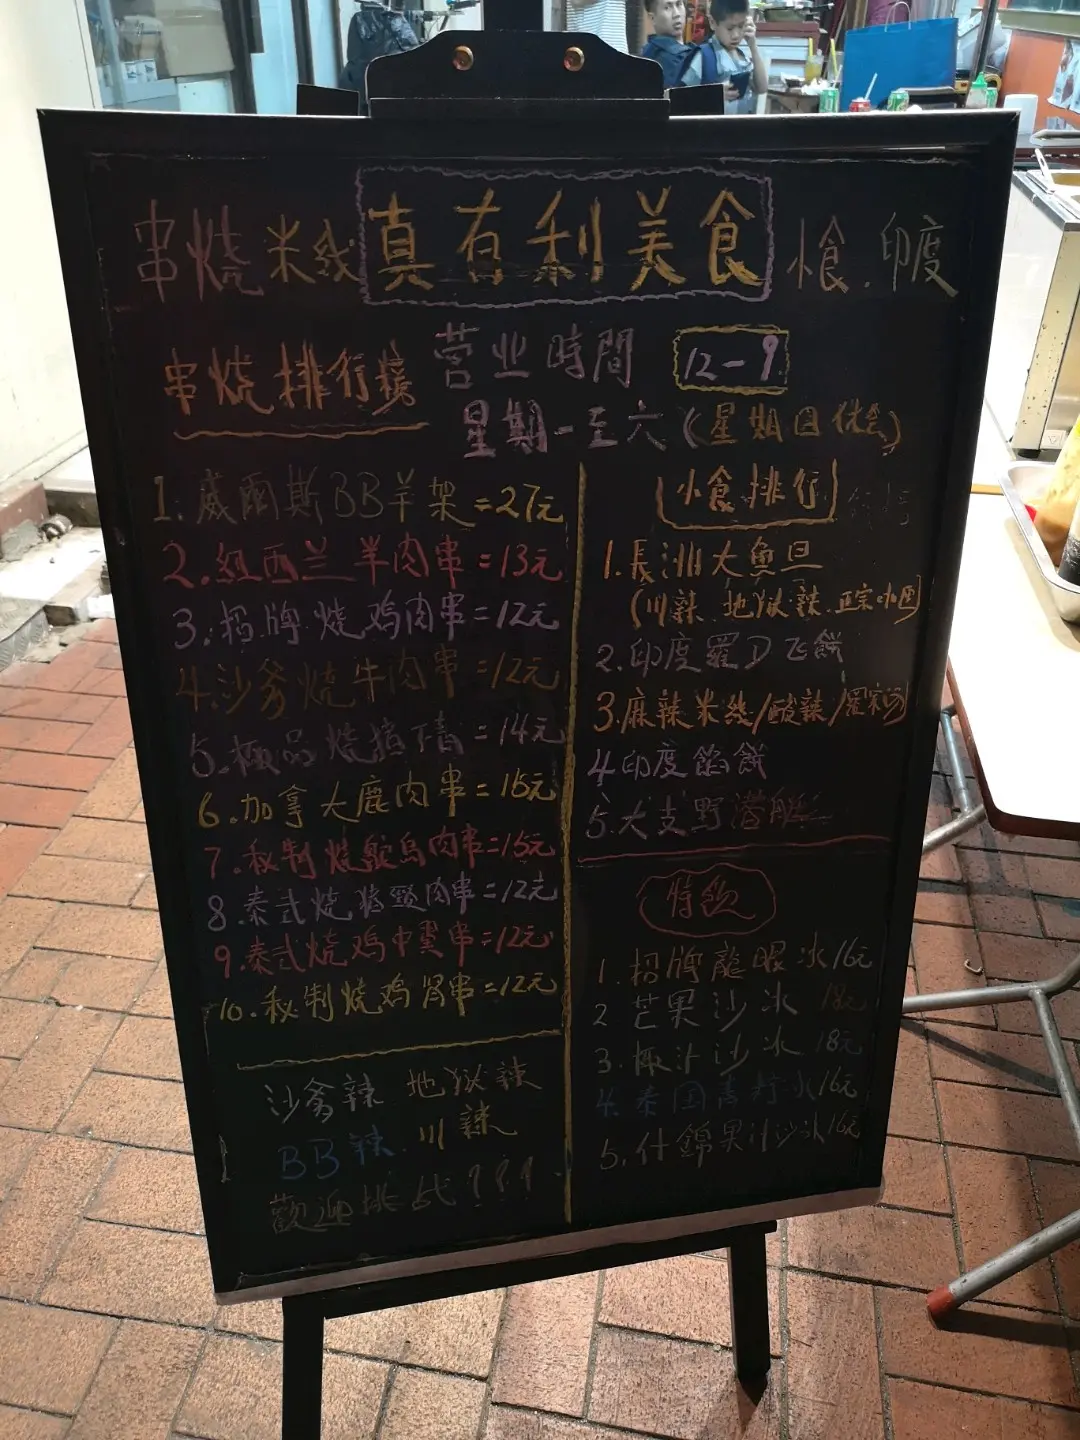 串燒 米线 真有利美食 小食.印度
串燒排行榜
营业時間 12-9
星期一至六(星期日休息)
1.威爾斯BB羊架=27元
2.纽西兰羊肉串=13元
3.招牌燒鸡肉串=12元
4.沙爹燒牛肉串=12元
5.極品燒 =14元
6.加拿大鹿肉串=15元
7.秘制燒鴕鸟肉串=15元
8.泰式燒猪頸肉串=12元
9.泰式燒鸡中翼串=12元
10.秘制燒鸡肾串=12元
沙爹辣 地獄辣
BB辣.川辣
歡迎挑战???
小食排行
1.長洲大魚旦
(川辣.地獄辣.正宗小 )
2.印度羅D飞餅
3.麻辣米线/酸辣/
4印度餡餅
5.大支野潜艇
特飲
1.招牌龍眼冰16元
2 芒果沙冰 18元
3.椰汁沙冰 18元
4.泰国青柠冰16元
5.什錦果汁沙冰16元